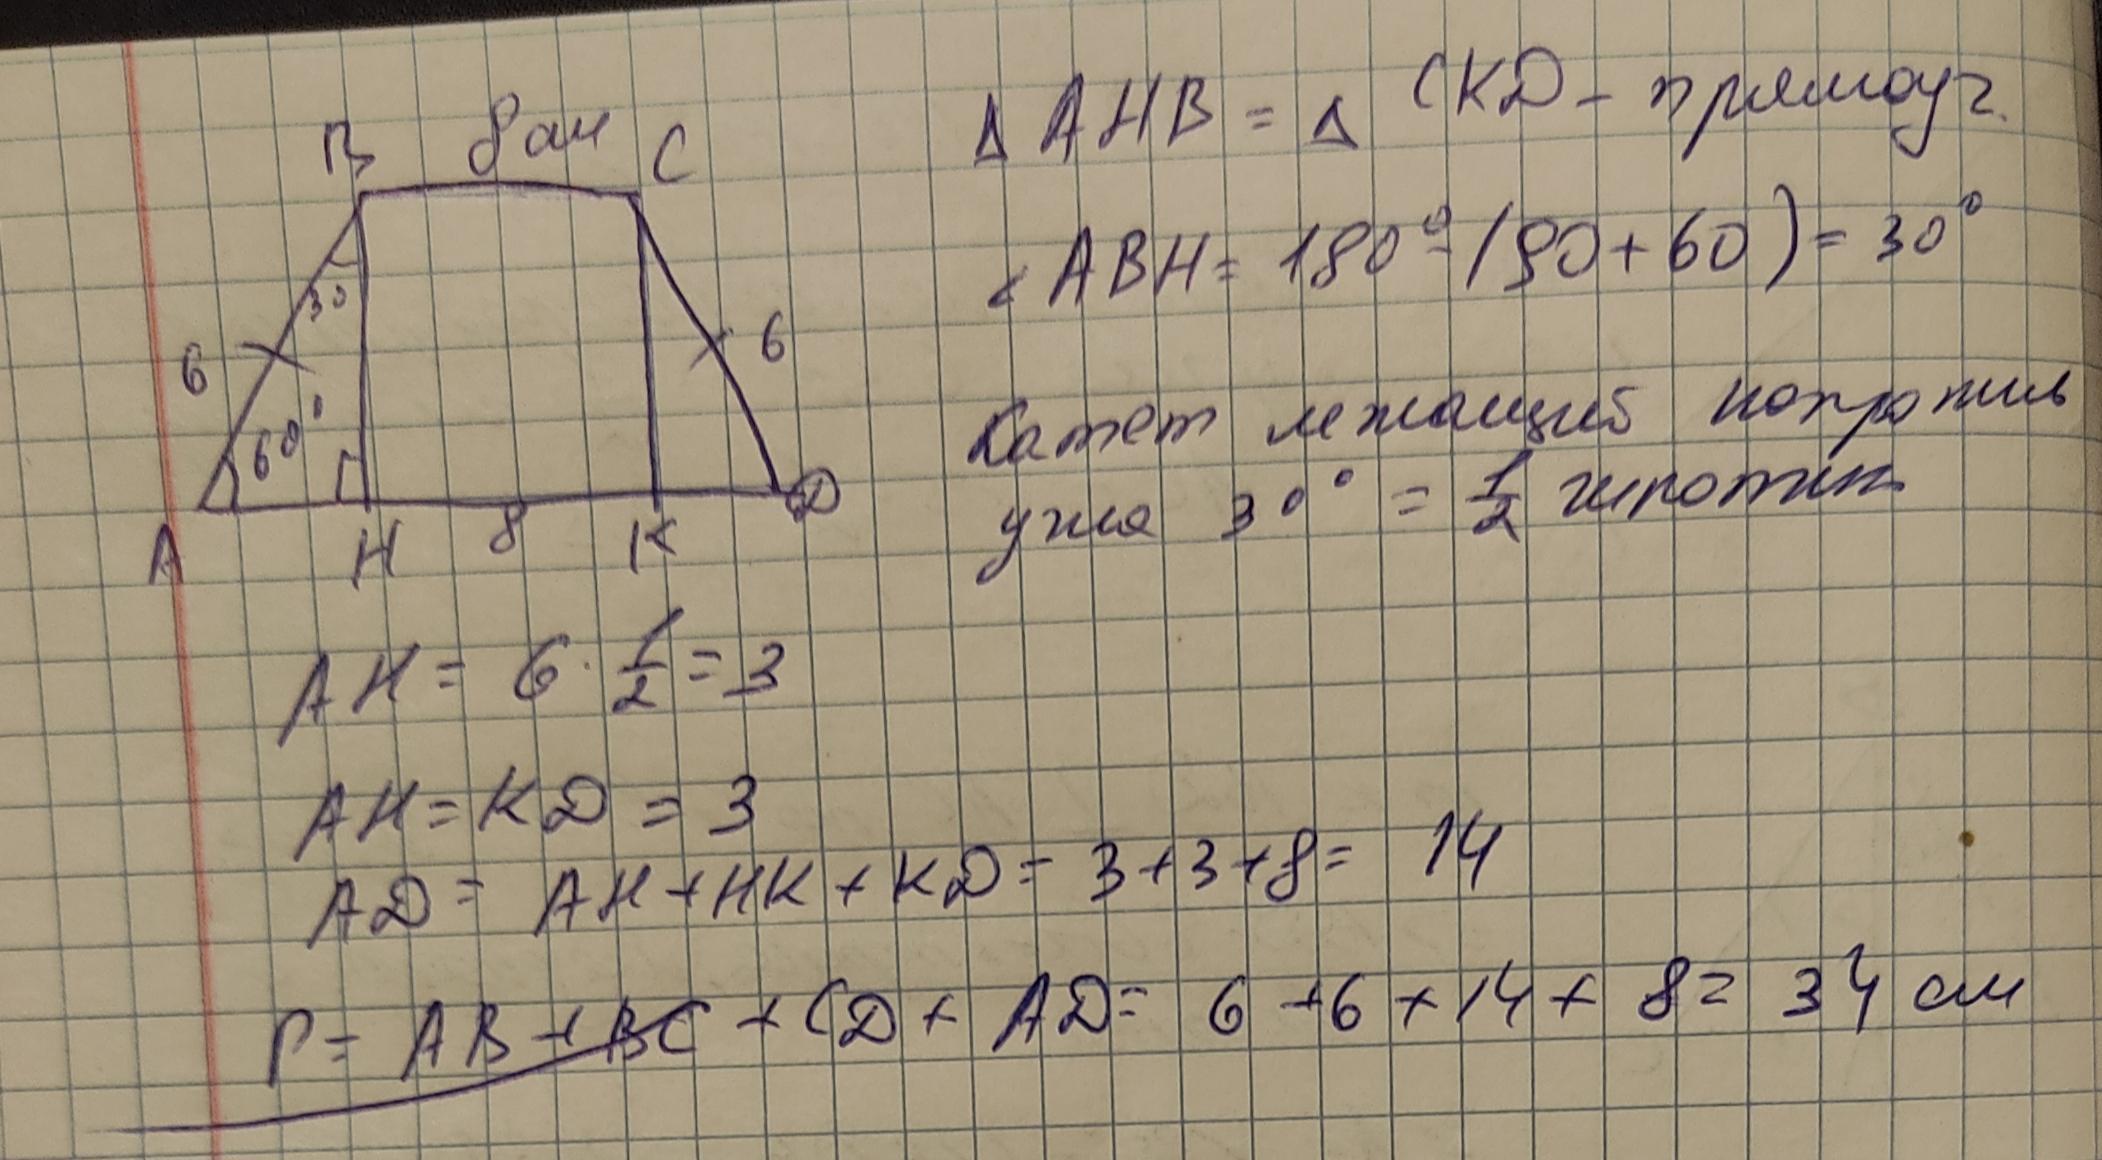 B 8 см C
30
6
6
60°
A H 8 K D
Δ AHB = Δ CKD - прямоуг.
∠ ABH = 180° - (90 + 60) = 30°
Катет лежащий напротив
угла 30° = 1/2 гипотен
AH = 6 · 1/2 = 3
AH = KD = 3
AD = AH + HK + KD = 3 + 3 + 8 = 14
P = AB + BC + CD + AD = 6 + 6 + 14 + 8 = 34 см